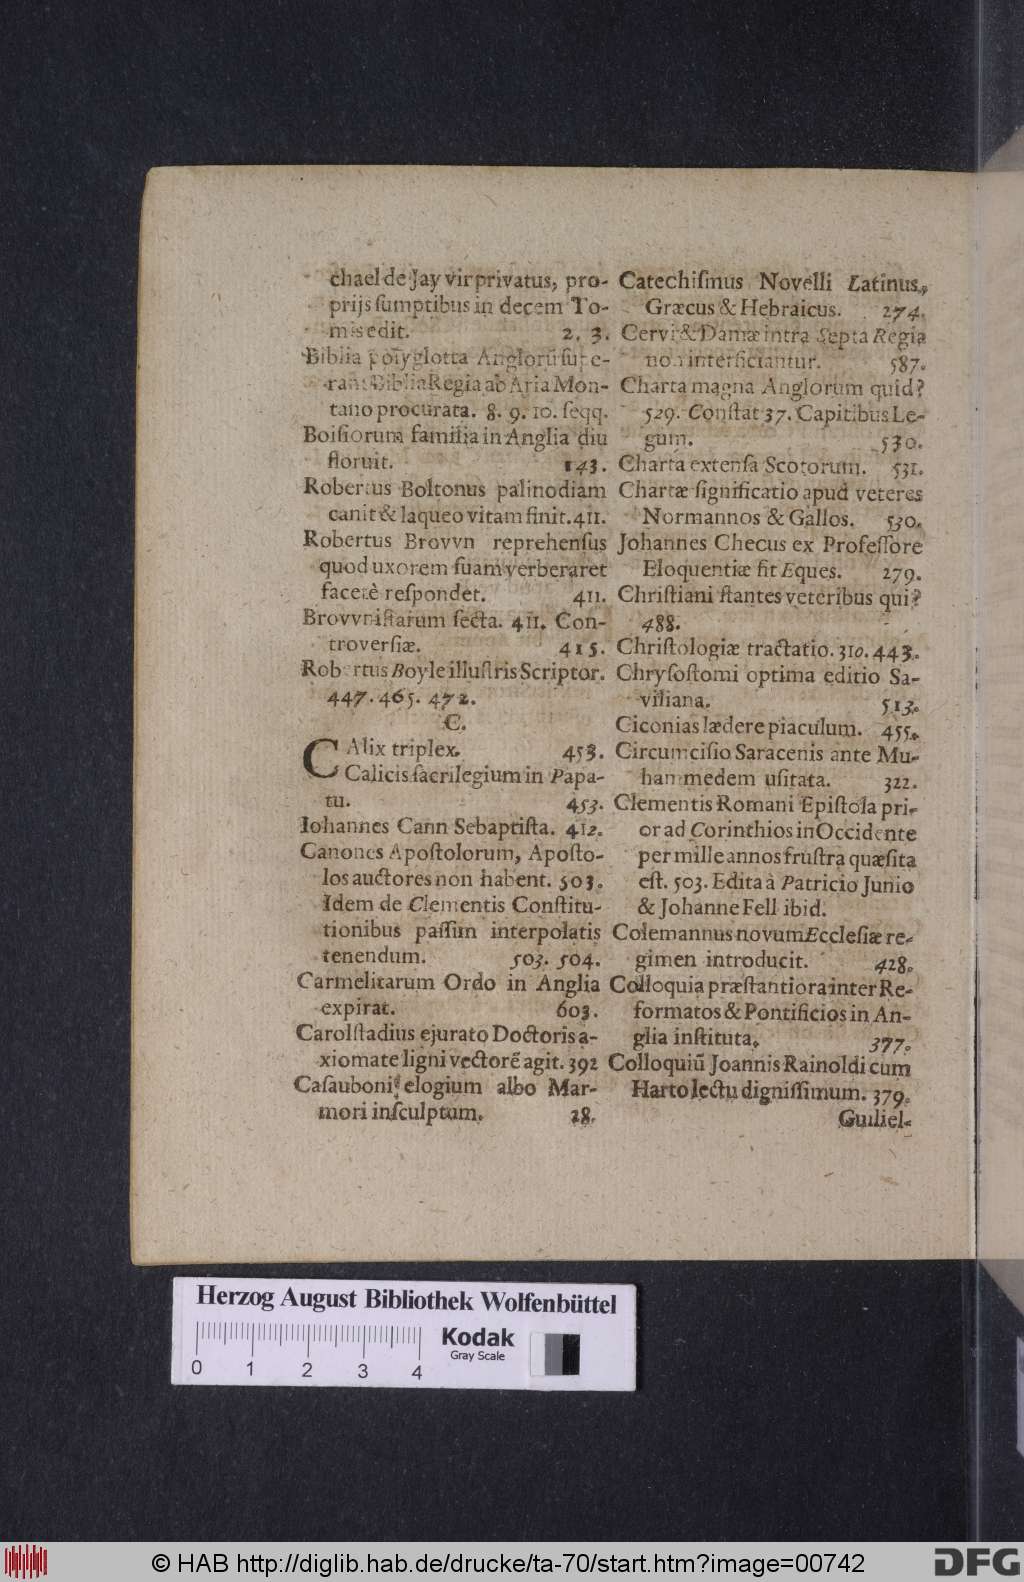 chael de Jay vir privatus, pro-
prijs ſumptibus in decem To-
mis edit. 2. 3.
Biblia polyglotta Anglorū ſupe-
rant Biblia Regia ab Aria Mon-
tano procurata. 8. 9. 10. ſeqq.
Boiſiorum familia in Anglia diu
floruit. 143.
Robertus Boltonus palinodiam
canit & laqueo vitam finit. 411.
Robertus Brovvn reprehenſus
quod uxorem ſuam verberaret
facetè reſpondet. 411.
Brovvniſtarum ſecta. 411. Con-
troverſiæ. 415.
Robertus Boyle illuſtris Scriptor.
447. 465. 472.
C.
CAlix triplex. 453.
Calicis ſacrilegium in Papa-
tu. 453.
Iohannes Cann Sebaptiſta. 412.
Canones Apoſtolorum, Apoſto-
los auctores non habent. 503.
Idem de Clementis Conſtitu-
tionibus paſſim interpolatis
tenendum. 503. 504.
Carmelitarum Ordo in Anglia
expirat. 603.
Carolſtadius ejurato Doctoris a-
xiomate ligni vectorē agit. 392
Caſauboni elogium albo Mar-
mori inſculptum. 28.
Catechiſmus Novelli Latinus,
Græcus & Hebraicus. 274.
Cervi & Damæ intra Septa Regia
non interficiantur. 587.
Charta magna Anglorum quid?
529. Conſtat 37. Capitibus Le-
gum. 530.
Charta extenſa Scotorum. 531.
Chartæ ſignificatio apud veteres
Normannos & Gallos. 530.
Johannes Checus ex Profeſſore
Eloquentiæ fit Eques. 279.
Chriſtiani ſtantes veteribus qui?
488.
Chriſtologiæ tractatio. 310. 443.
Chryſoſtomi optima editio Sa-
viliana. 513.
Ciconias lædere piaculum. 455.
Circumciſio Saracenis ante Mu-
hammedem uſitata. 322.
Clementis Romani Epiſtola pri-
or ad Corinthios in Occidente
per mille annos fruſtra quæſita
eſt. 503. Edita à Patricio Junio
& Johanne Fell ibid.
Colemannus novum Eccleſiæ re-
gimen introducit. 428.
Colloquia præſtantiora inter Re-
formatos & Pontificios in An-
glia inſtituta. 377.
Colloquiū Joannis Rainoldi cum
Harto lectu digniſſimum. 379.
Guiliel-
Herzog August Bibliothek Wolfenbüttel
Kodak
Gray Scale
0 1 2 3 4
© HAB http://diglib.hab.de/drucke/ta-70/start.htm?image=00742
DFG